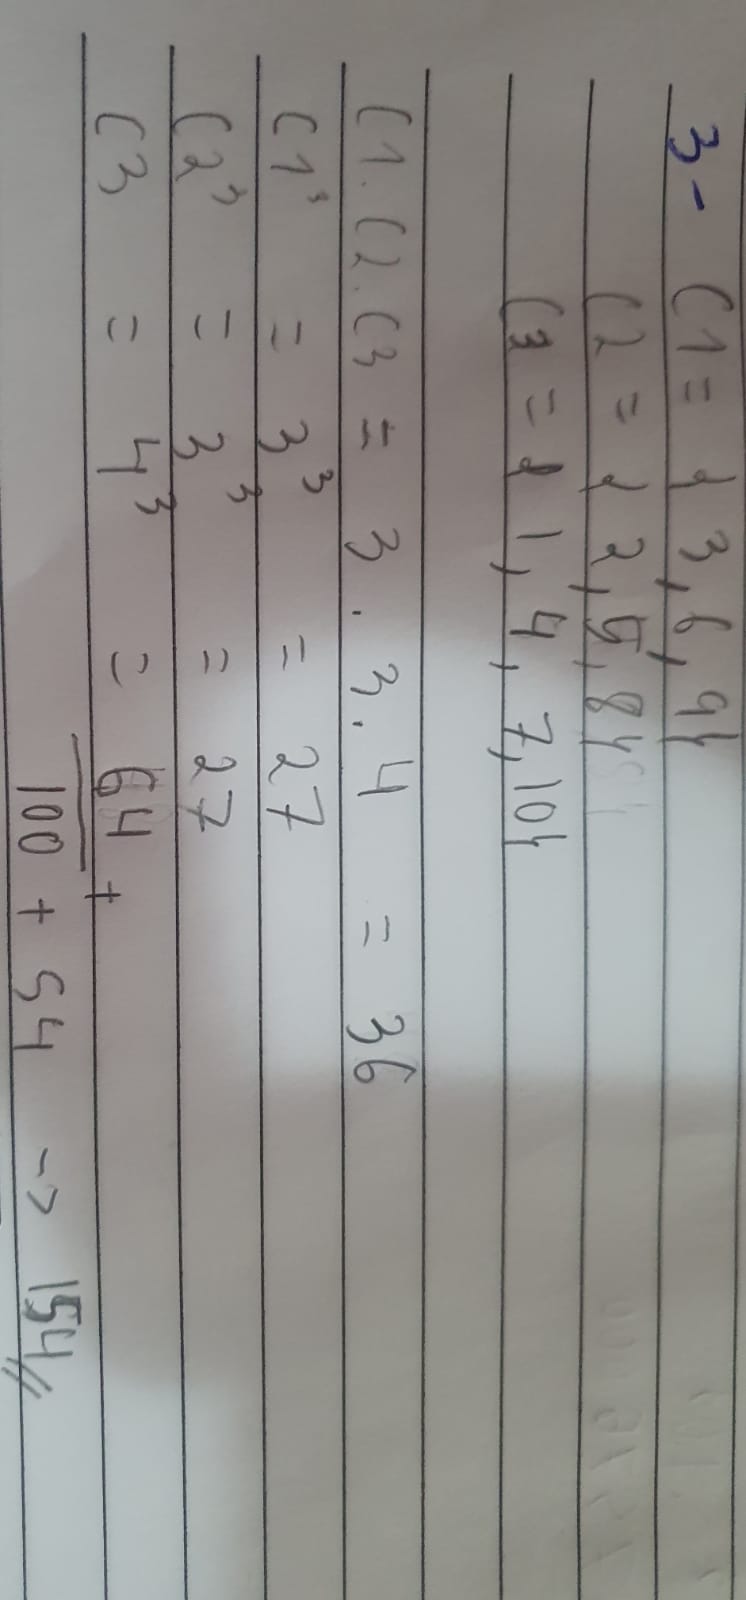 3- C1 = { 3, 6, 9}
C2 = { 2, 5, 8}
C3 = { 1, 4, 7, 10}
C1. C2. C3 = 3 . 3. 4 = 36
C1³ = 3³ = 27
C2³ = 3³ = 27
C3 = 4³ = 64 +
100 + 54 -> 154//